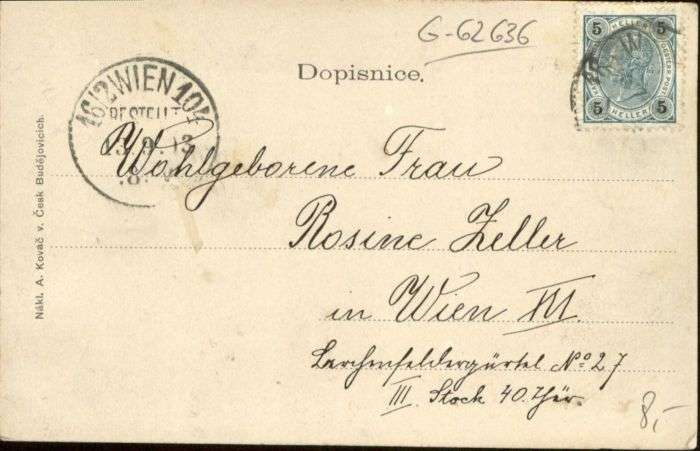 G-62636
5 HELLER 5
5 HELLER 5
Dopisnice.
16/2 WIEN 10
BESTELLT
13.9.03
.8.
Wohlgeborene Frau
Rosine Zeller
in Wien XVI.
Lerchenfeldergürtel No 27
III. Stock 40. Thür.
8,-
Nákl. A. Kovač v. Česk Budějovicích.